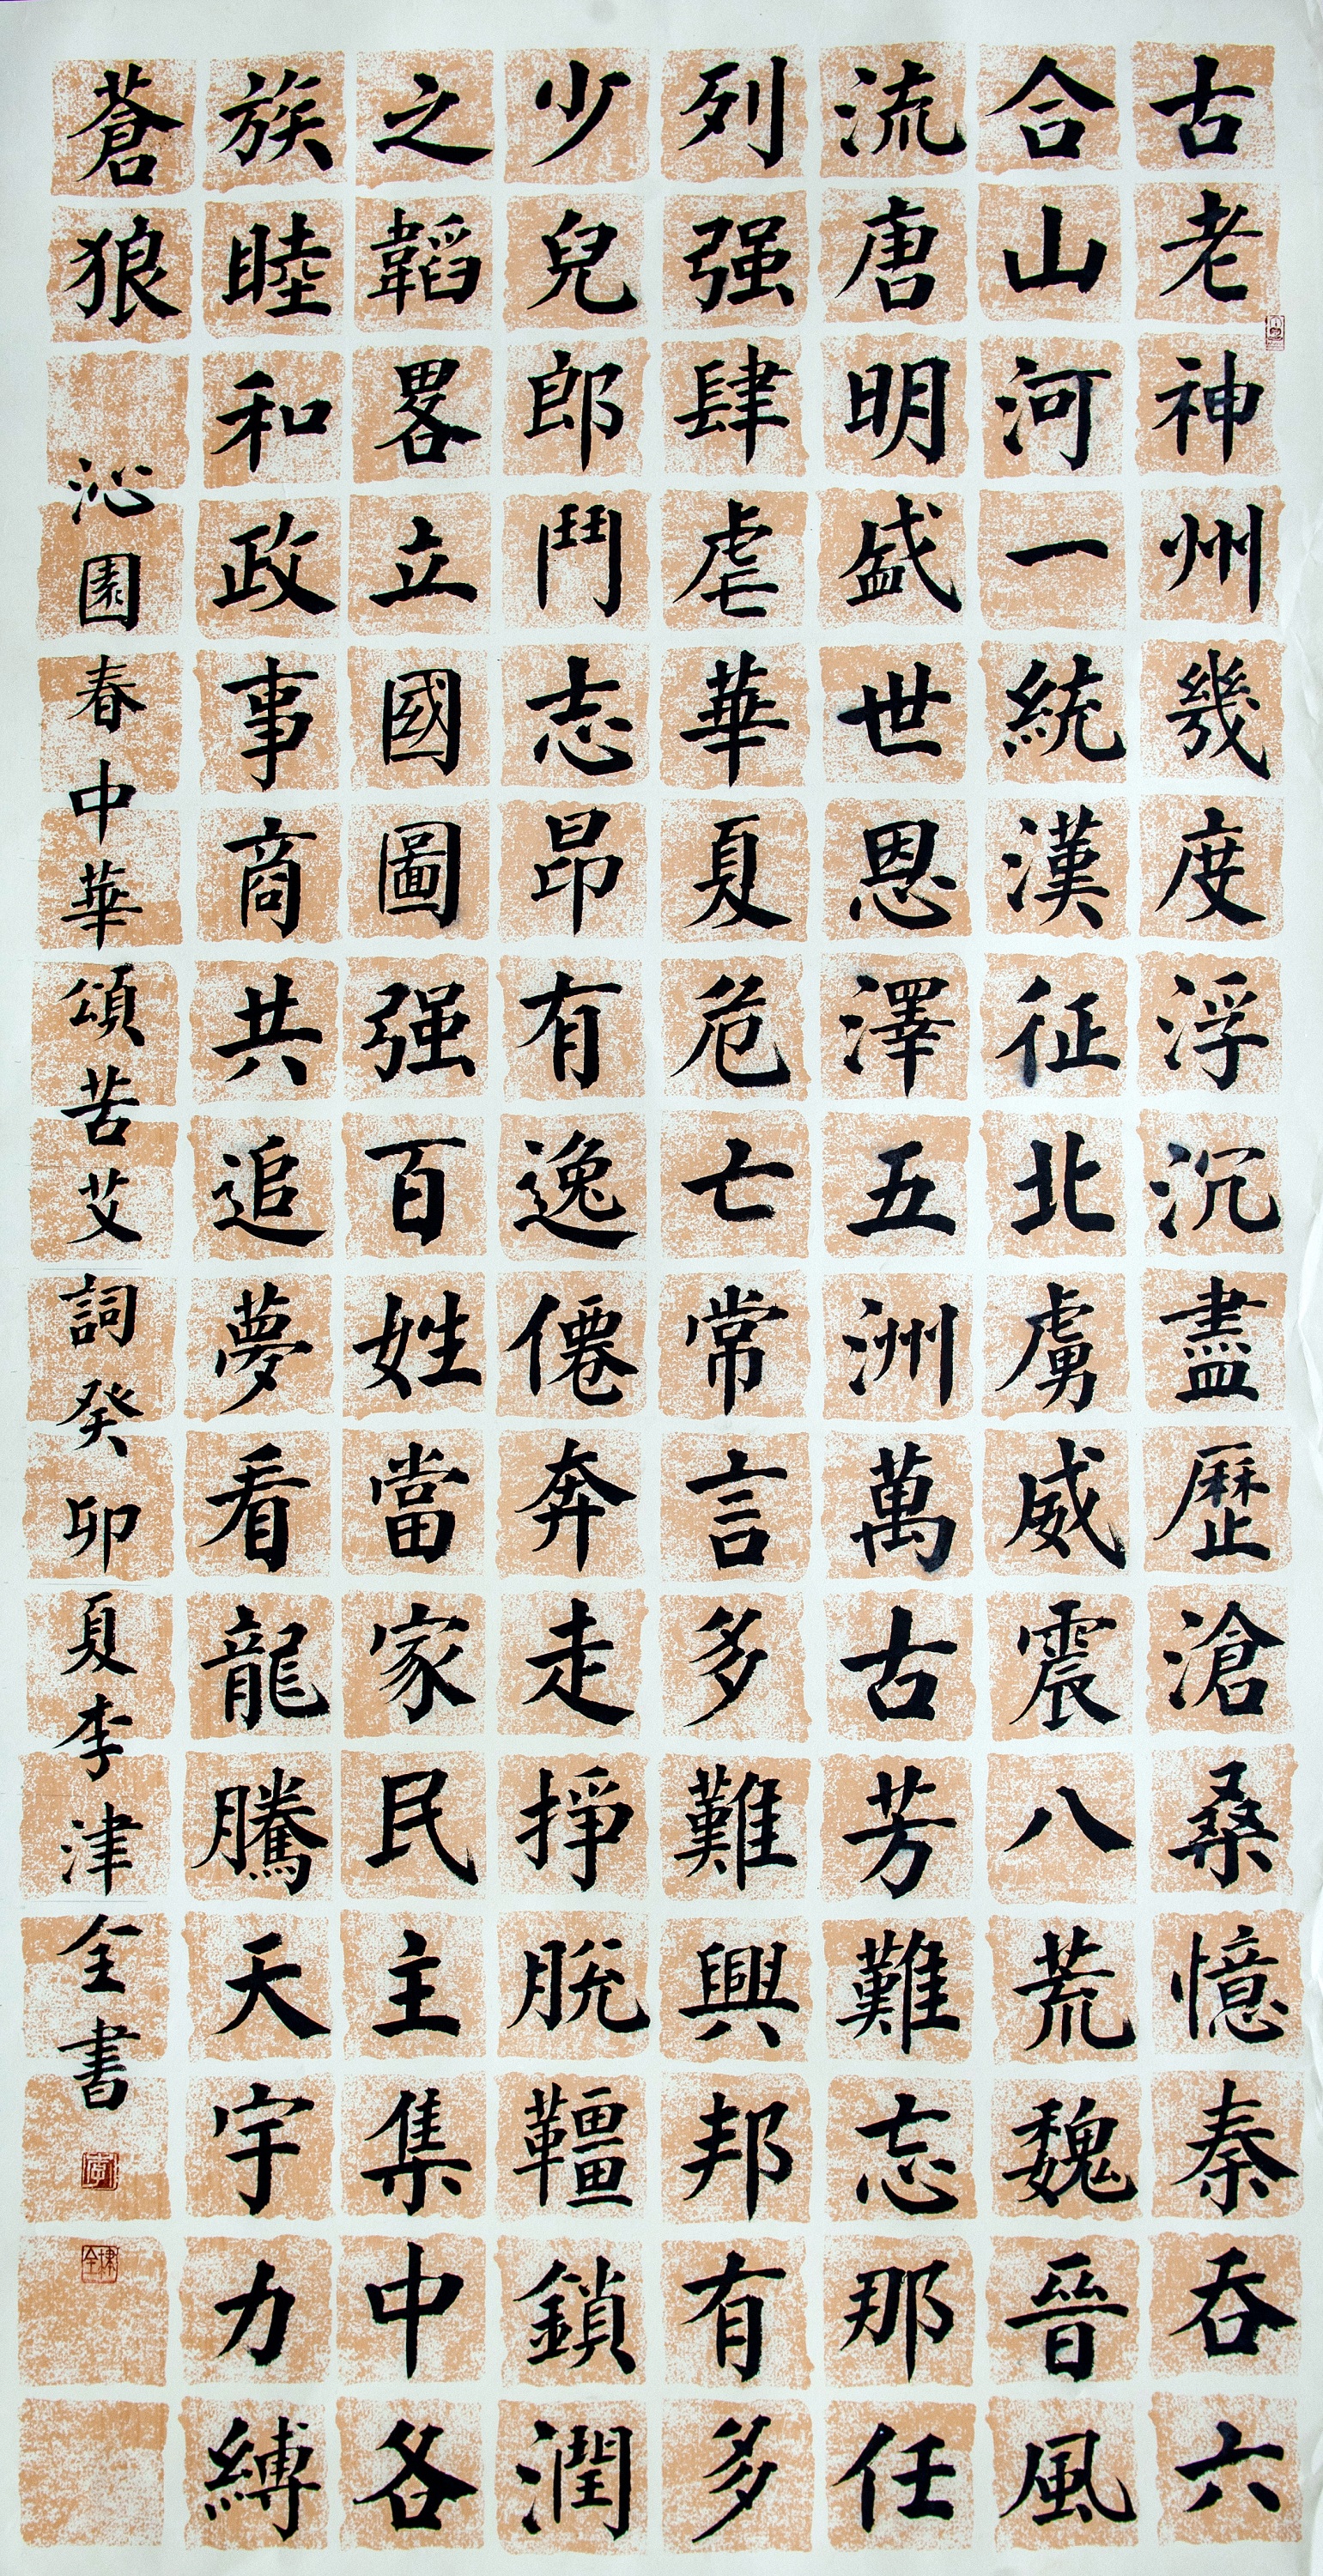 古老神州幾度浮沉盡歷滄桑憶秦吞六
合山河一統漢征北虜威震八荒魏晉風
流唐明盛世恩澤五洲萬古芳難忘那任
列强肆虐華夏危亡常言多難興邦有多
少兒郎鬥志昂有逸僊奔走掙脫韁鎖潤
之韜畧立國圖强百姓當家民主集中各
族睦和政事商共追夢看龍騰天宇力縛
蒼狼
沁園春中華頌苦艾詞癸卯夏李津全書